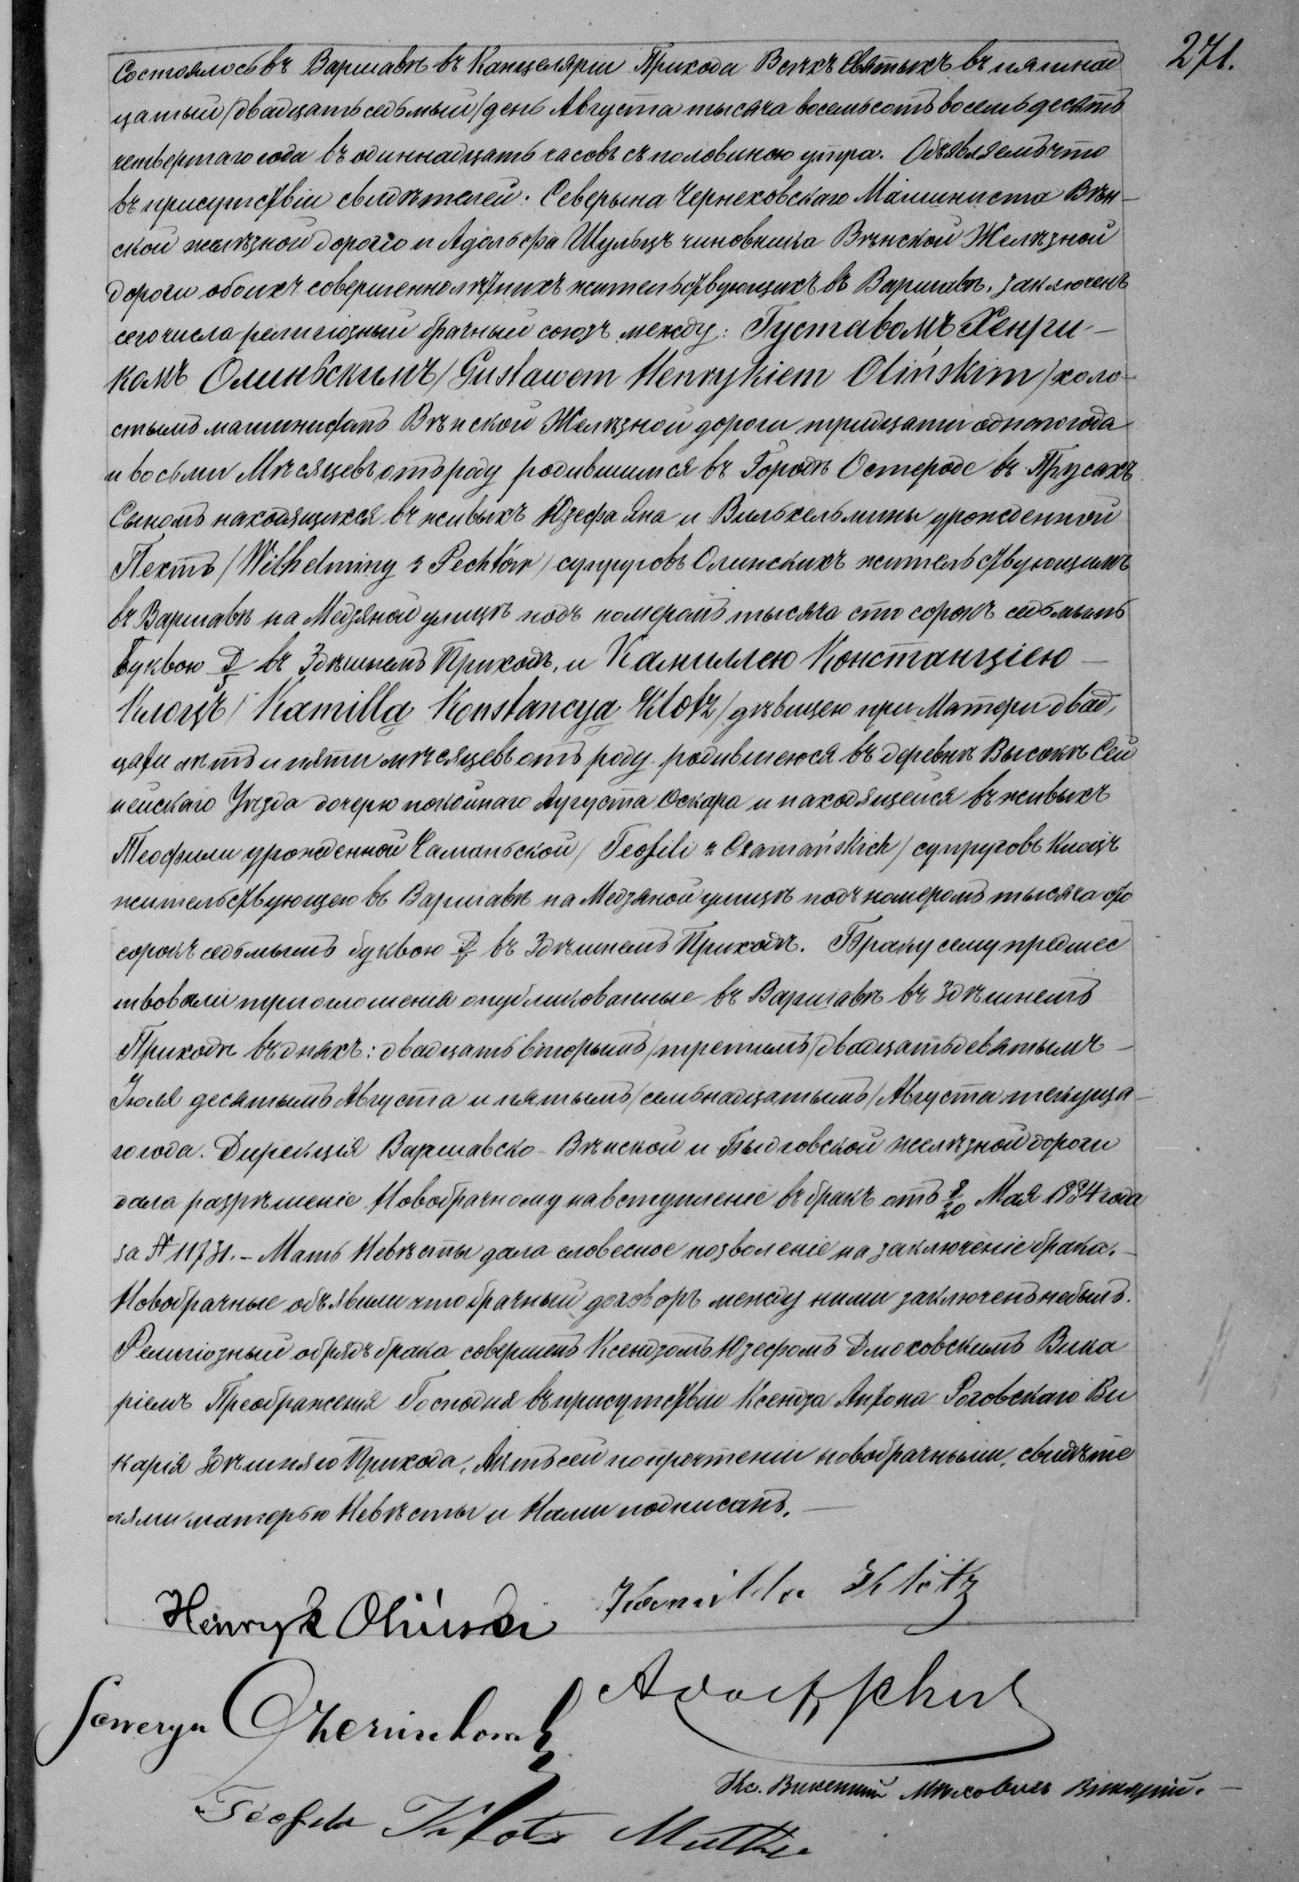 271.
Состоялось въ Варшавѣ въ Канцеляріи Прихода Всѣхъ Святыхъ въ пятнад
цатый /двадцать седьмый/ день Августа тысяча восемьсотъ восемьдесятъ
четвертаго года въ одиннадцать часовъ съ половиною утра. Объявляемъ что
въ присутствіи свидѣтелей: Северына Чернеховскаго Машиниста Вѣн-
ской желѣзной дороги и Адольфа Шульцъ чиновника Вѣнской Желѣзной
дороги обоихъ совершеннолѣтнихъ жительствующихъ въ Варшавѣ, заключенъ
сего числа религіозный брачный союзъ между: Густавомъ Хенри-
комъ Олиньскимъ /Gustawem Henrykiem Olińskim/ холо-
стымъ машинистомъ Вѣнской Желѣзной дороги тридцати одного года
и восьми Мѣсяцевъ отъ роду родившимся въ Городѣ Остероде въ Прусахъ
Сыномъ находящихся въ живыхъ Юзефа Яна и Вильхельмины урожденной
Пехтъ /Wilhelminy z Pechtów/ супруговъ Олинскихъ жительствующимъ
въ Варшавѣ на Медзяной улицѣ подъ номеромъ тысяча сто сорокъ седьмымъ
буквою въ Здѣшнемъ Приходѣ, и Камиллею Констанціею —
Клоцъ /Kamillą Konstancyą Klotz/ дѣвицею при Матери двад,
цати лѣтъ и пяти мѣсяцевъ отъ роду родившеюся въ деревнѣ Высокѣ Сей
нейскаго Уѣзда дочерю покойнаго Аугуста Оскара и находящейся въ живыхъ
Теофили урожденной Чаманьской /Teofili z Czamańskich/ супруговъ Клоцъ
жительствующею въ Варшавѣ на Медзяной улицѣ подъ номеромъ тысяча сто
сорокъ седьмымъ буквою въ Здѣшнемъ Приходѣ. Браку сему предшес
твовали три оглошенія опубликованные въ Варшавѣ въ Здѣшнемъ
Приходѣ въ дняхъ: двадцать вторымъ /третьимъ/ двадцать девятымъ —
Іюля десятымъ Августа и пятымъ /семьнадцатымъ/ Августа текуща-
го года. Дирекція Варшавско-Вѣнской и Быдговской желѣзной дороги
дала разрѣшеніе Новобрачному на вступленіе въ бракъ отъ 8/20 Мая 1884 года
за № 11731. — Мать Невѣсты дала словесное позволеніе на заключеніе брака. —
Новобрачные объявили что брачный договоръ между ними заключенъ небылъ.
Религіозный обрядъ брака совершенъ Ксендзомъ Юзефомъ Дмоховскимъ Вика
ріемъ Преображенія Господня въ присутствіи Ксендза Антона Роговскаго Ви
карія Здѣшняго Прихода, Актъ сей по прочтеніи новобрачными, свидѣте
лями матерью Невѣсты и Нами подписанъ. —
Henryk Oliński Kamilla Klotz
Seweryn Adolf
Кс. Викарій. —
Teofila Klotz Mutter